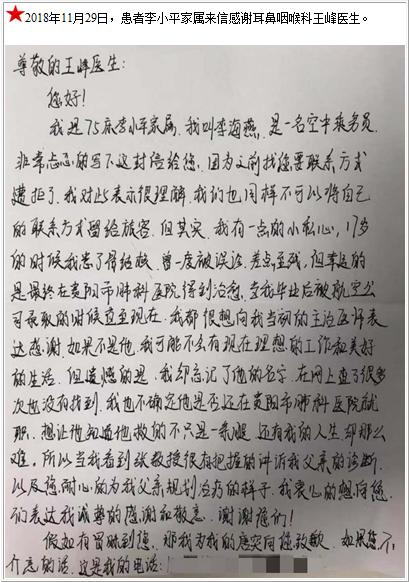 ★2018年11月29日，患者李小平家属来信感谢耳鼻咽喉科王峰医生。
尊敬的王峰医生：
您好！
我是75床李小平家属，我叫李海燕，是一名空中乘务员，
非常忐忑的写下这封信给您，因为之前找您要联系方式
遭拒了，我对此表示很理解，我们也同样不可以将自己
的联系方式留给旅客，但其实，我有一点的小私心，17岁
的时候我患了骨结核，曾一度被误诊，差点至残，但幸运的
是最终在贵阳市肺科医院得到治愈，至我毕业后被航空公
司录取的时候直至现在，我都很想向我当初的主治医师表
达感谢，如果不是他，我可能不会有现在理想的工作和美好
的生活，但遗憾的是，我却忘记了他的名字，在网上查了很多
次也没有找到，我也不确定他是否还在贵阳市肺科医院就
职，想让他知道他救的不只是一条腿，还有我的人生，却那么
难。所以当我看到张教授很有把握的讲诉我父亲的诊断，
以及您耐心的为我父亲规划治疗的样子，我衷心的想向您
们表达我诚挚的感谢和敬意，谢谢您们！
假如有冒昧到您，那我为我的唐突向您致歉，如果您不
介意的话，这是我的电话：